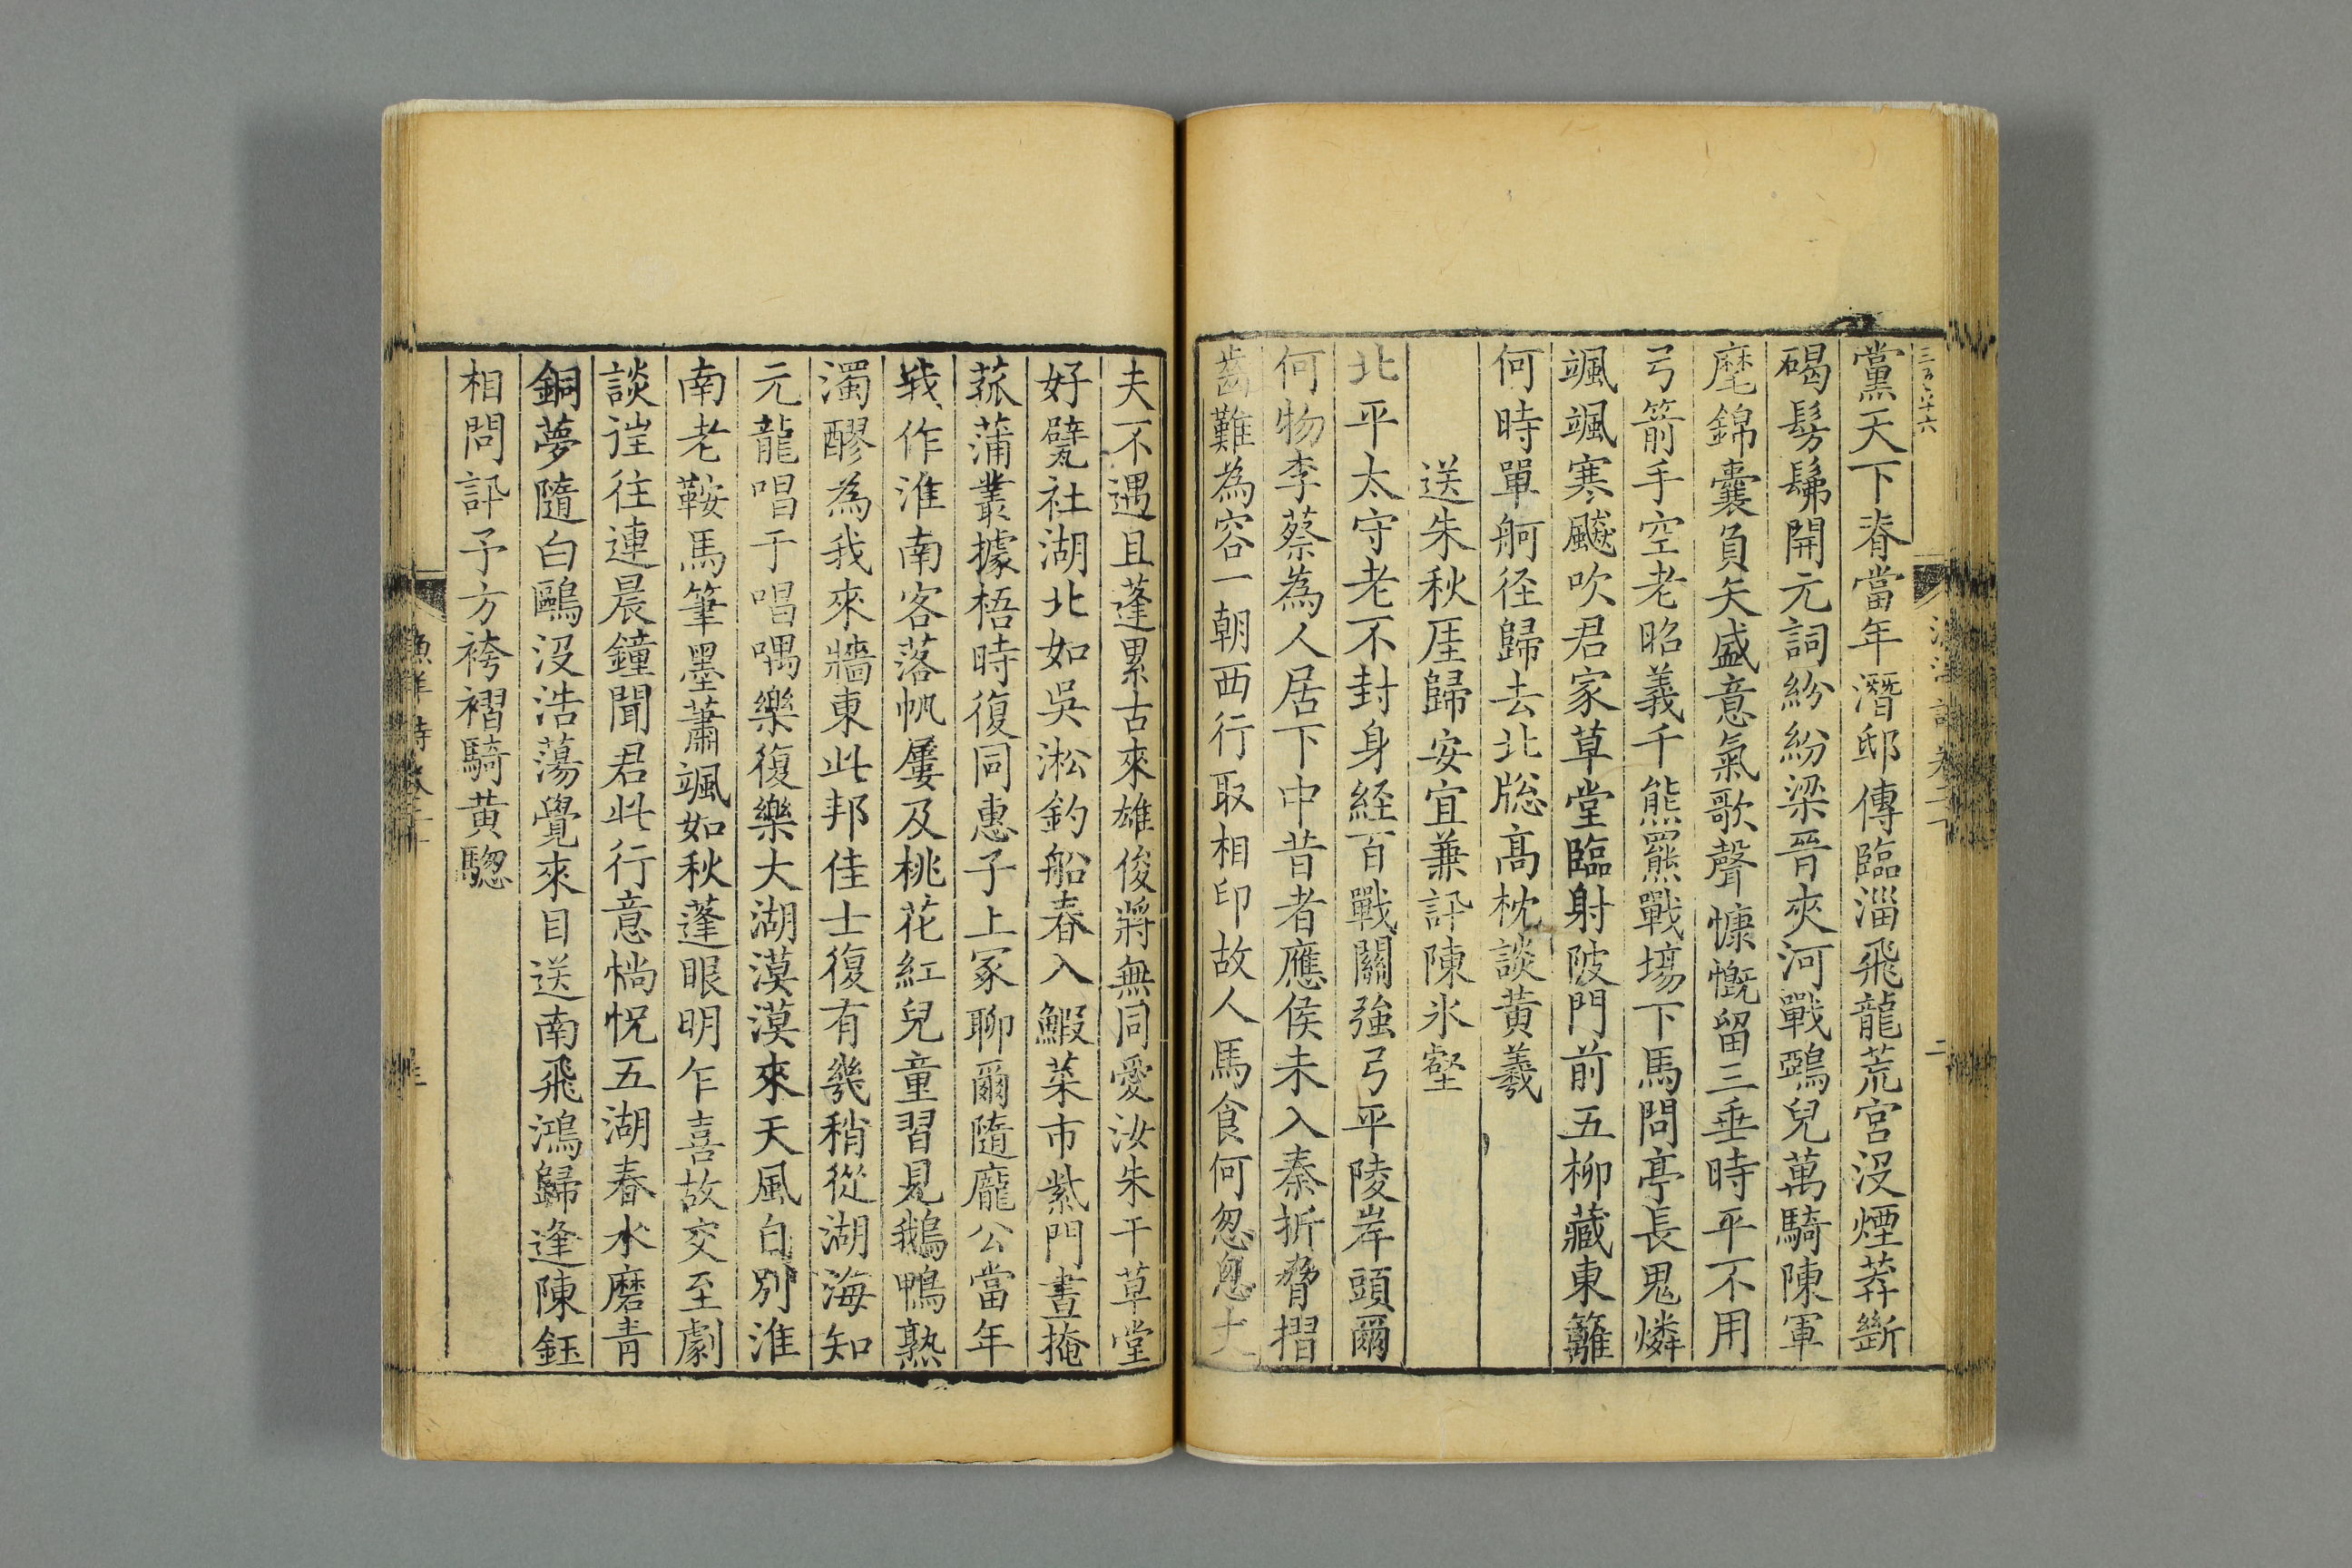 三百六十六
黨天下脊當年潛邸傳臨淄飛龍荒宮沒煙莽斷
碣髣髴開元詞紛紛梁晉夾河戰鵶兒萬騎陳軍
麾錦囊負矢盛意氣歌聲慷慨留三垂時平不用
弓箭手空老昭義千熊羆戰場下馬問亭長鬼燐
颯颯寒飈吹君家草堂臨射陂門前五柳藏東籬
何時單舸径歸去北牎高枕談黃羲
送朱秋厓歸安宜兼訊陳氷壑
北平太守老不封身経百戰關強弓平陵岸頭爾
何物李蔡為人居下中昔者應侯未入秦折脅摺
齒難為容一朝西行取相印故人馬食何怱怱丈
夫不遇且蓬累古來雄俊將無同愛汝朱干草堂
好甓社湖北如吳淞釣船春入鰕菜市紫門晝掩
菰蒲叢據梧時復同惠子上冢聊爾隨龐公當年
我作淮南客落帆屢及桃花紅兒童習見鵝鴨熟
濁醪為我來牆東此邦佳士復有幾稍從湖海知
元龍唱于唱喁樂復樂大湖漠漠來天風自別淮
南老鞍馬筆墨蕭颯如秋蓬眼明乍喜故交至劇
談徃往連晨鐘聞君此行意惝怳五湖春水磨青
銅夢隨白鷗沒浩蕩覺來目送南飛鴻歸逢陳鈺
相問訊予方袴褶騎黃驄
漁洋詩